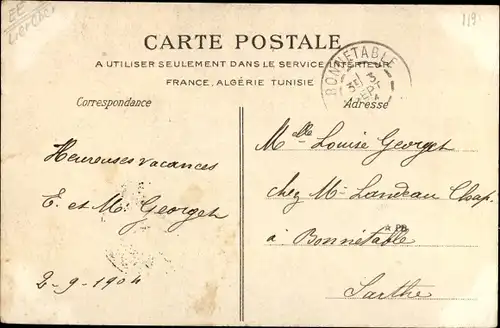 EE
119
CARTE POSTALE
A UTILISER SEULEMENT DANS LE SERVICE INTÉRIEUR
FRANCE, ALGÉRIE TUNISIE
BONNETABLE
3
SEPT
Correspondance
Adresse
Heureuses vacances
E. et M. Georget
2-9-1904
Melle Louise Georget
chez Mr Landeau Chap.
à Bonnétable
Sarthe